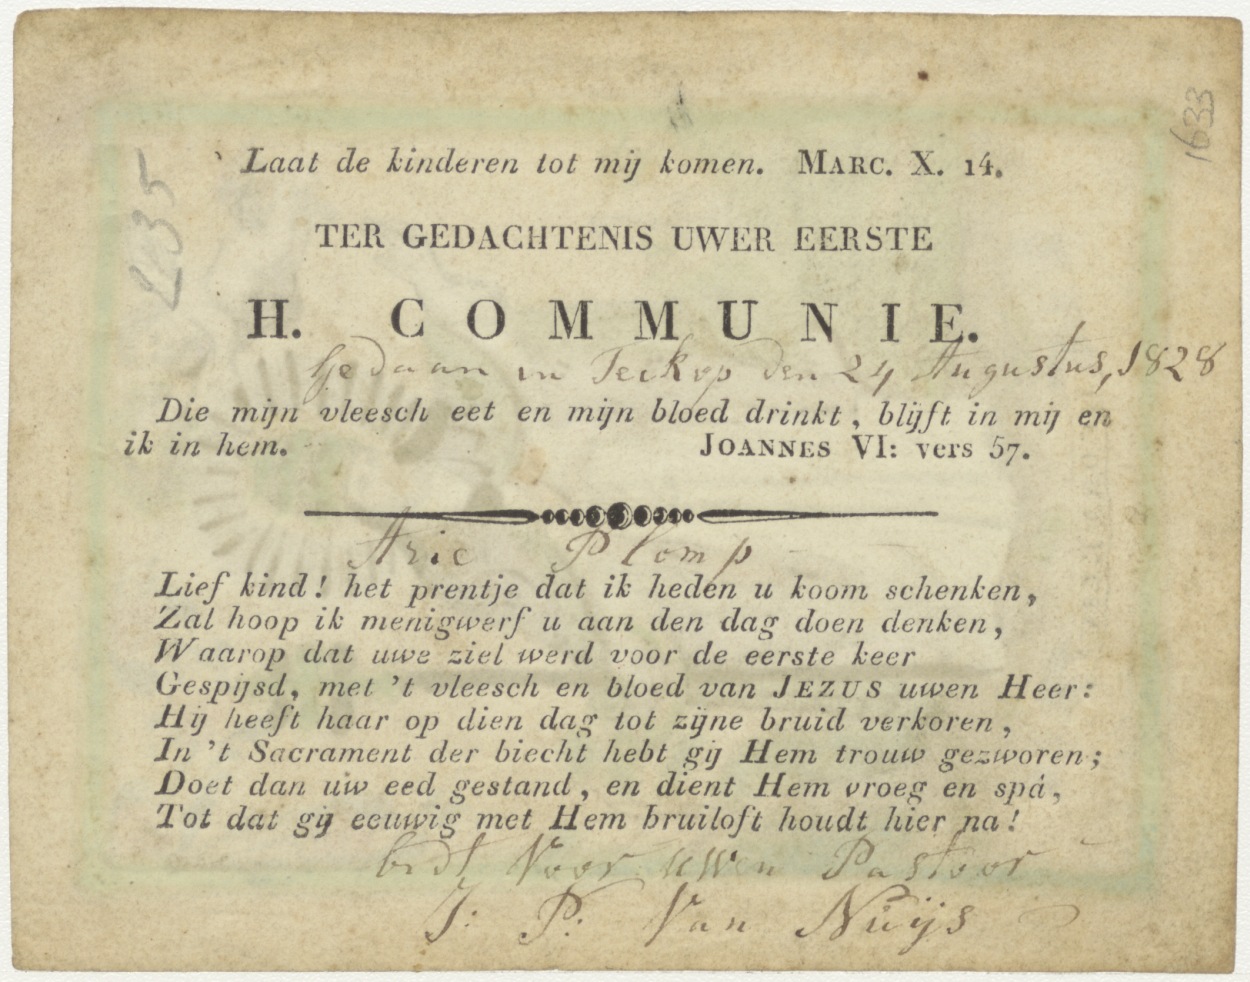 1633
235
Laat de kinderen tot mij komen. MARC. X. 14.
TER GEDACHTENIS UWER EERSTE
H. COMMUNIE.
Gedaan in Teckop den 24 Augustus, 1828
Die mijn vleesch eet en mijn bloed drinkt, blijft in mij en
ik in hem. JOANNES VI: vers 57.
Arie Plomp
Lief kind! het prentje dat ik heden u koom schenken,
Zal hoop ik menigwerf u aan den dag doen denken,
Waarop dat uwe ziel werd voor de eerste keer
Gespijsd, met 't vleesch en bloed van JEZUS uwen Heer:
Hij heeft haar op dien dag tot zijne bruid verkoren,
In 't Sacrament der biecht hebt gij Hem trouw gezworen;
Doet dan uw eed gestand, en dient Hem vroeg en spá,
Tot dat gij eeuwig met Hem bruiloft houdt hier na!
bidt Voor uwen Pastoor
J: P: Van Nuijs